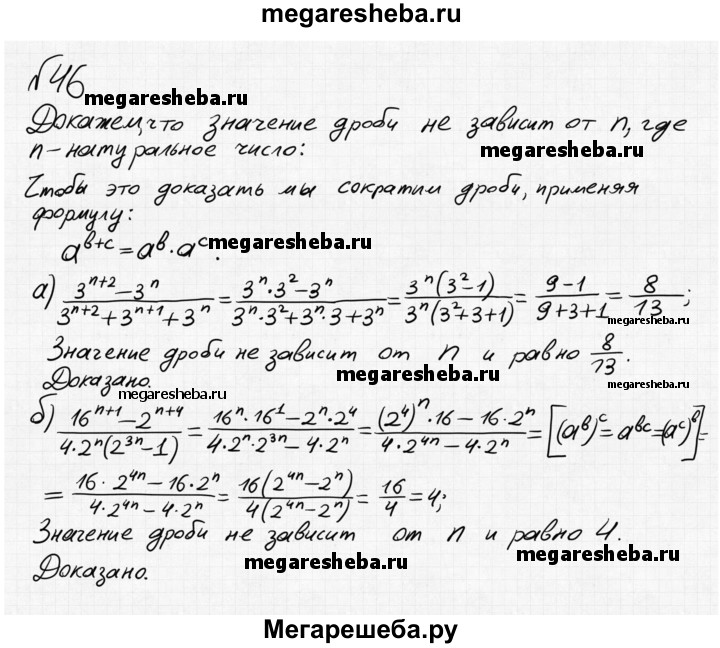 megaresheba.ru
№46
megaresheba.ru
Докажем, что значение дроби не зависит от n, где
n – натуральное число:
megaresheba.ru
Чтобы это доказать мы сократим дроби, применяя
формулу:
a^(b+c) = a^b · a^c.
megaresheba.ru
а) (3^(n+2) − 3^n)/(3^(n+2) + 3^(n+1) + 3^n) = (3^n·3^2 − 3^n)/(3^n·3^2 + 3^n·3 + 3^n) = (3^n(3^2 − 1))/(3^n(3^2 + 3 + 1)) = (9 − 1)/(9 + 3 + 1) = 8/13;
megaresheba.ru
Значение дроби не зависит от n и равно 8/13.
megaresheba.ru
Доказано.
megaresheba.ru
megaresheba.ru
б) (16^(n+1) − 2^(n+4))/(4·2^n(2^(3n) − 1)) = (16^n·16^1 − 2^n·2^4)/(4·2^n·2^(3n) − 4·2^n) = ((2^4)^n·16 − 16·2^n)/(4·2^(4n) − 4·2^n) = [(a^b)^c = a^(bc) = (a^c)^b] =
= (16·2^(4n) − 16·2^n)/(4·2^(4n) − 4·2^n) = (16(2^(4n) − 2^n))/(4(2^(4n) − 2^n)) = 16/4 = 4;
Значение дроби не зависит от n и равно 4.
megaresheba.ru
megaresheba.ru
Доказано.
Мегарешеба.ру